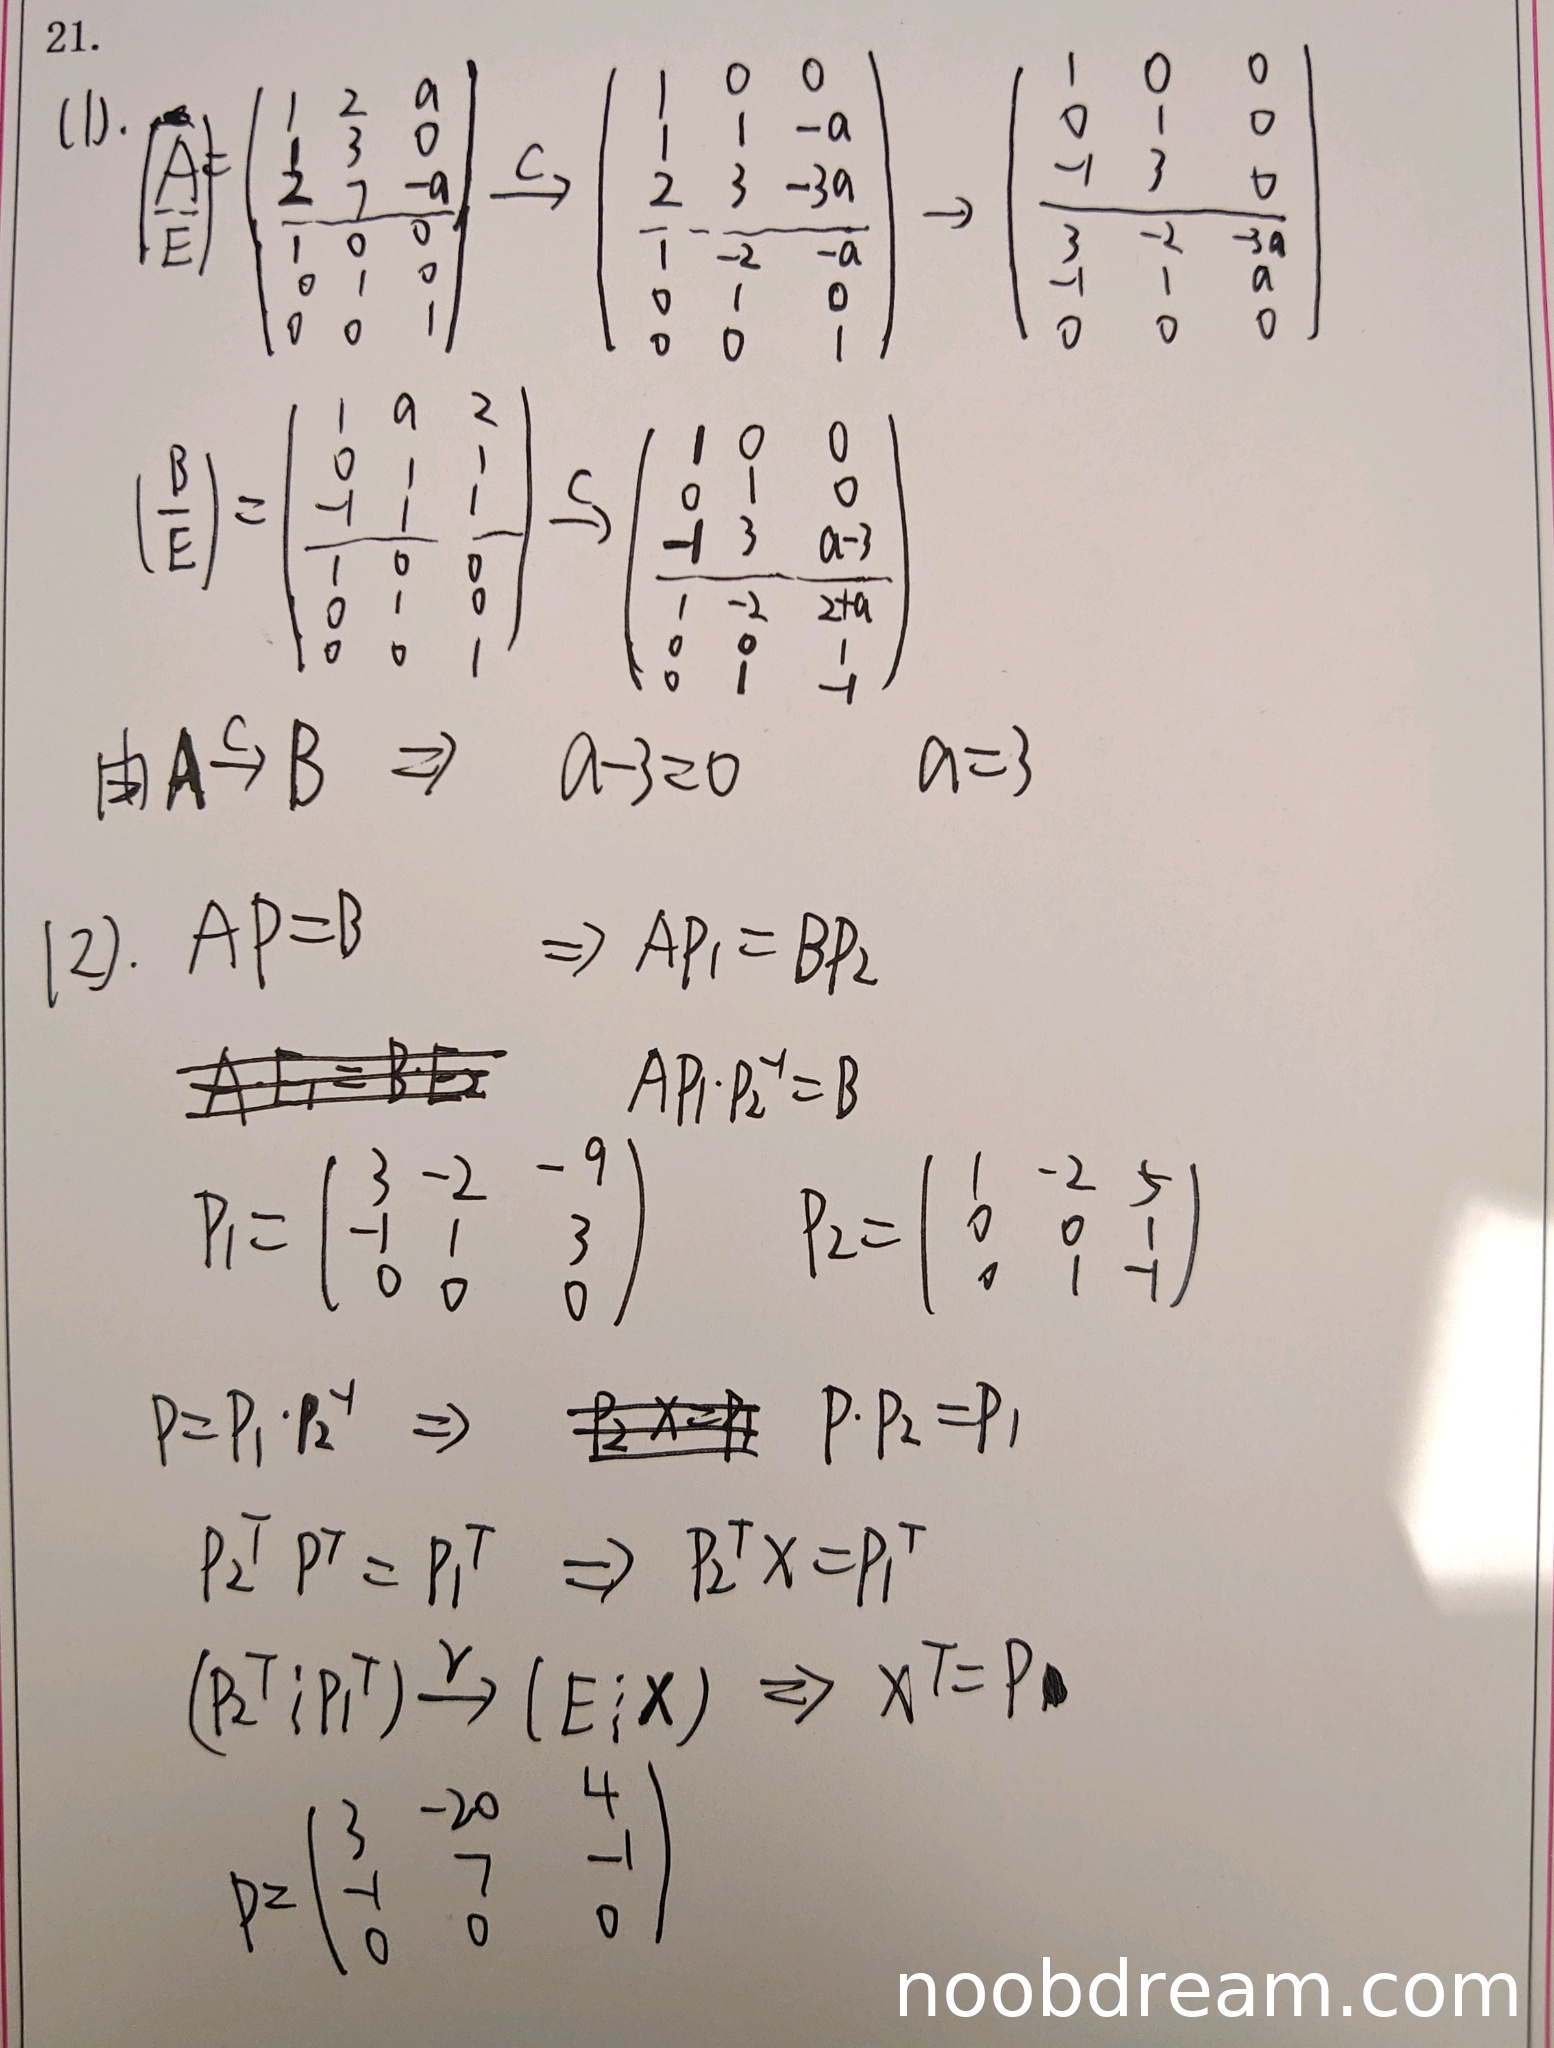 21.
(1). (A/E) = (1 2 a; 1 3 0; 2 7 -a; 1 0 0; 0 1 0; 0 0 1) —C→ (1 0 0; 1 1 -a; 2 3 -3a; 1 -2 -a; 0 1 0; 0 0 1) → (1 0 0; 0 1 0; -1 3 0; 3 -2 -3a; -1 1 a; 0 0 0)
(B/E) = (1 a 2; 0 1 1; -1 1 1; 1 0 0; 0 1 0; 0 0 1) —C→ (1 0 0; 0 1 0; -1 3 a-3; 1 -2 2+a; 0 0 1; 0 1 -1)
由 A —C→ B ⇒ a-3=0 a=3
(2). AP=B ⇒ AP₁=BP₂
A·E₁=B·E₂ AP₁·P₂⁻¹=B
P₁= (3 -2 -9; -1 1 3; 0 0 0) P₂= (1 -2 5; 0 0 1; 0 1 -1)
P=P₁·P₂⁻¹ ⇒ P₂X=P₁ P·P₂=P₁
P₂ᵀPᵀ=P₁ᵀ ⇒ P₂ᵀX=P₁ᵀ
(P₂ᵀ⋮P₁ᵀ) —r→ (E⋮X) ⇒ Xᵀ=P
P= (3 -20 4; -1 7 -1; 0 0 0)
noobdream.com